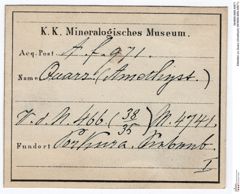 K. K. Mineralogisches Museum.
Acq. Post A. f. 971.
Name Quarz (Amethyst).
V. d. N. 466 (38/35) M. 4741.
Fundort Porkura.
I